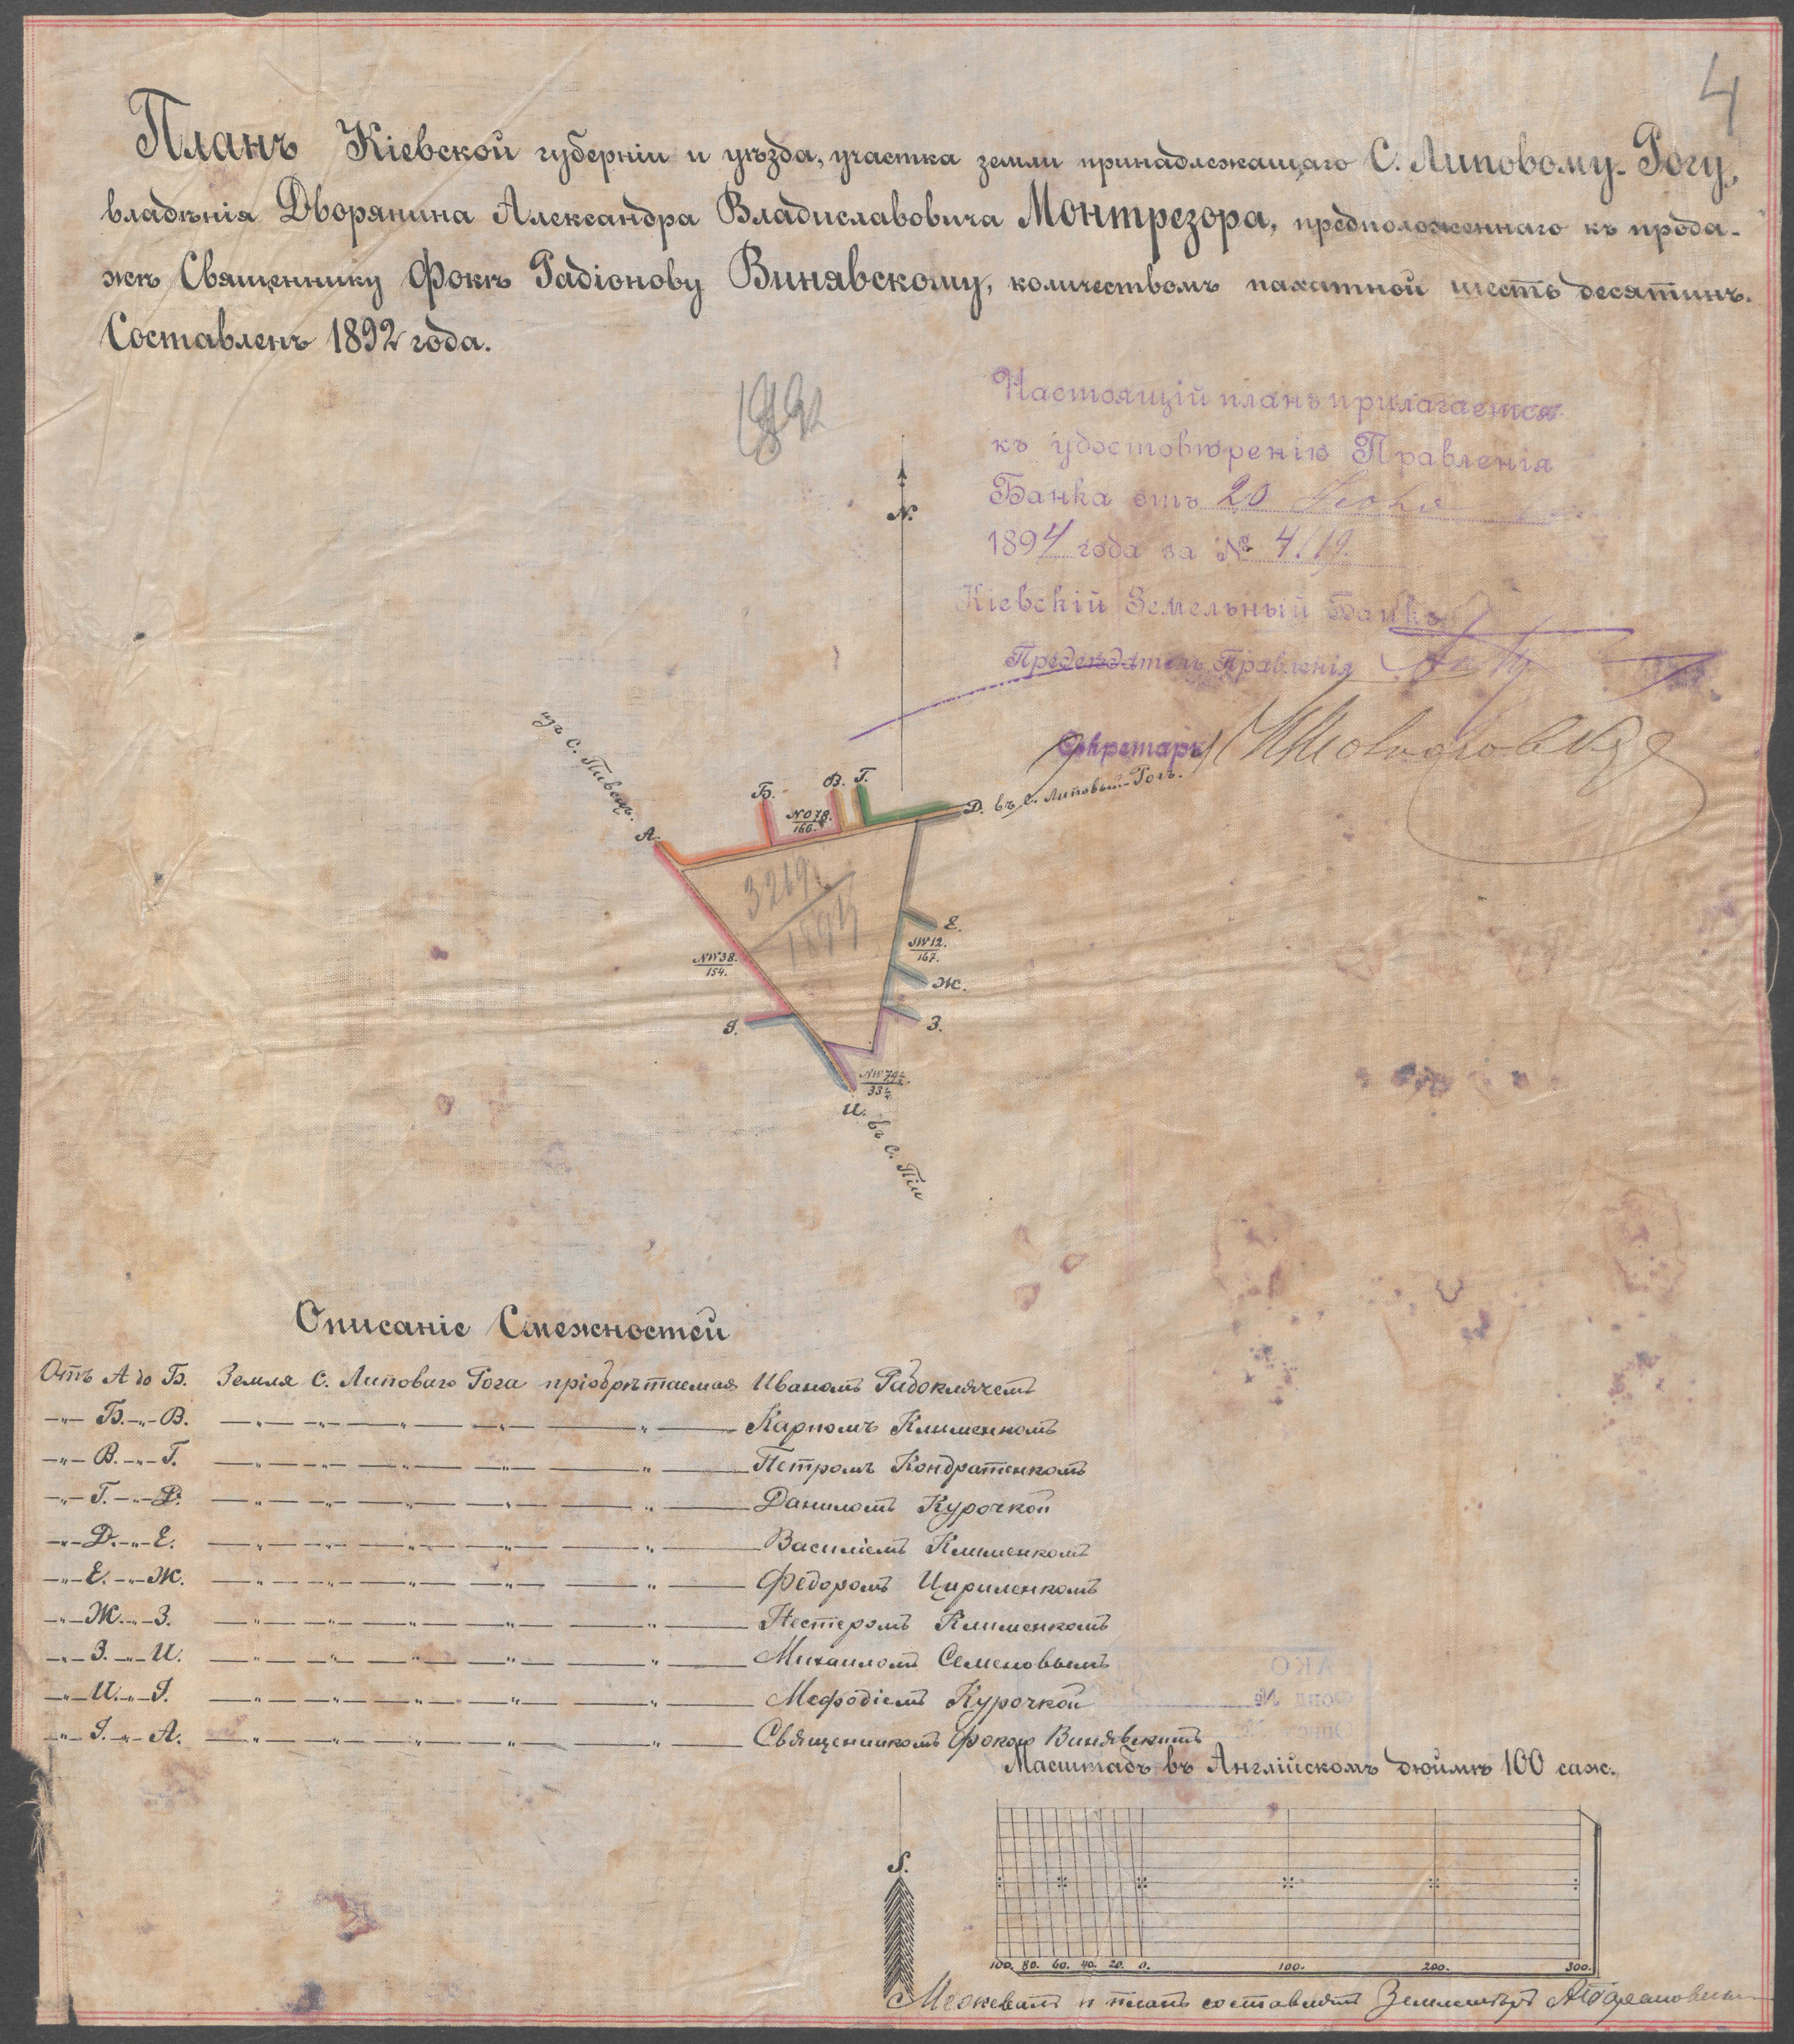 4
Планъ Кіевской губерніи и уѣзда, участка земли принадлежащаго С. Липовому-Рогу,
владѣнія Дворянина Александра Владиславовича Монтрезора, предположеннаго къ прода-
жѣ Священнику Фокѣ Радіонову Винявскому, количествомъ пахатной шесть десятинъ.
Составленъ 1892 года.
1892
Настоящій планъ прилагается
къ удостовѣренію Правленія
Банка отъ 20
1894 года за № 4119.
Кіевскій Земельный Банкъ
Предсѣдатель Правленія
Секретарь
N.
изъ С. Пивецъ.
А.
Б.
В.
Г.
Д.
въ С. Липовый-Рогъ.
NO 78.
166.
3219
1894
Е.
SW 12.
167.
NW 38.
154.
Ж.
З.
І.
NW 79½
33½
И.
въ С. Піи
Описаніе Смежностей
Отъ А до Б. Земля С. Липоваго Рога пріобрѣтаемая Иваномъ Радоклячемъ
—„— Б.—„—В. —„— —„— —„— —„— —„— Карпомъ Клименкомъ
—„— В.—„—Г. —„— —„— —„— —„— —„— Петромъ Кондратенкомъ
—„— Г.—„—Д. —„— —„— —„— —„— —„— Даниломъ Курочкой
—„— Д.—„—Е. —„— —„— —„— —„— —„— Василіемъ Клименкомъ
—„— Е.—„—Ж. —„— —„— —„— —„— —„— Федоромъ Цириленкомъ
—„— Ж.—„—З. —„— —„— —„— —„— —„— Нестеромъ Клименкомъ
—„— З.—„—И. —„— —„— —„— —„— —„— Михаиломъ Семеновымъ
—„— И.—„—І. —„— —„— —„— —„— —„— Мефодіемъ Курочкой
—„— І.—„—А. —„— —„— —„— —„— —„— Священникомъ Фокою Винявскимъ
АКО
Фонд №
Опись
Масштабъ въ Англійскомъ дюймѣ 100 саж.
S.
100. 80. 60. 40. 20. 0. 100. 200. 300.
Межевалъ и планъ составлялъ Землемѣръ